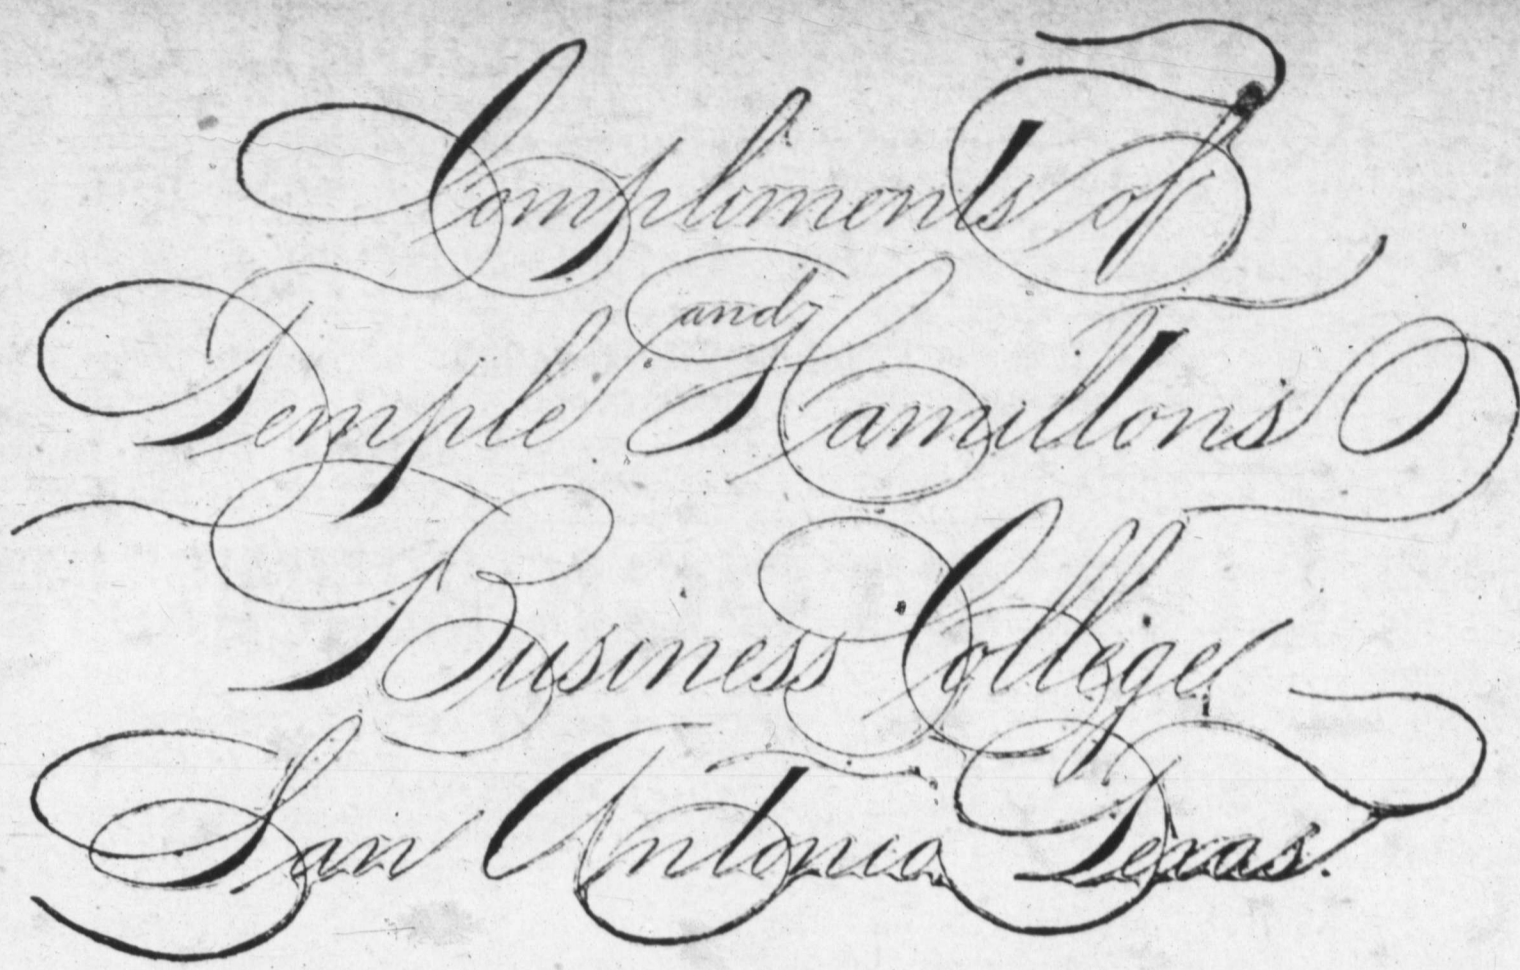 Compliments of
Temple and Hamiltons
Business College
San Antonio Texas.